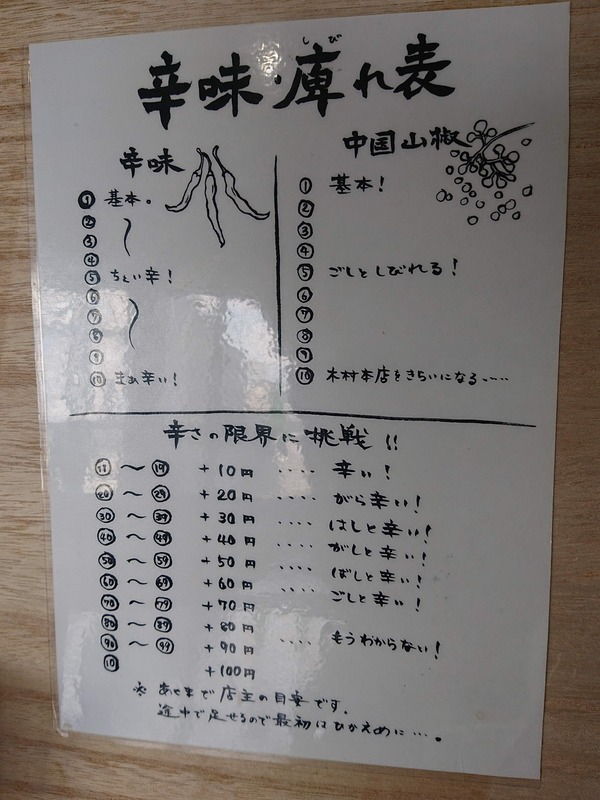 しび
辛味・痺れ表
辛味
① 基本。
②
③
④
⑤ ちょい辛！
⑥
⑦
⑧
⑨
⑩ まぁ辛い！
中国山椒
① 基本！
②
③
④
⑤ ごしとしびれる！
⑥
⑦
⑧
⑨
⑩ 木村本店をきらいになる……
辛さの限界に挑戦!!
⑪〜⑲ +10円 ････ 辛い！
⑳〜㉙ +20円 ････ がら辛い！
㉚〜㊴ +30円 ････ はしと辛い！
㊵〜㊾ +40円 ････ がしと辛い！
50〜59 +50円 ････ ばしと辛い！
60〜69 +60円 ････ ごしと辛い！
70〜79 +70円
80〜89 +80円
90〜99 +90円 ････ もうわからない！
⑩ +100円
※ あくまで店主の目安です。
途中で足せるので最初はひかえめに…。